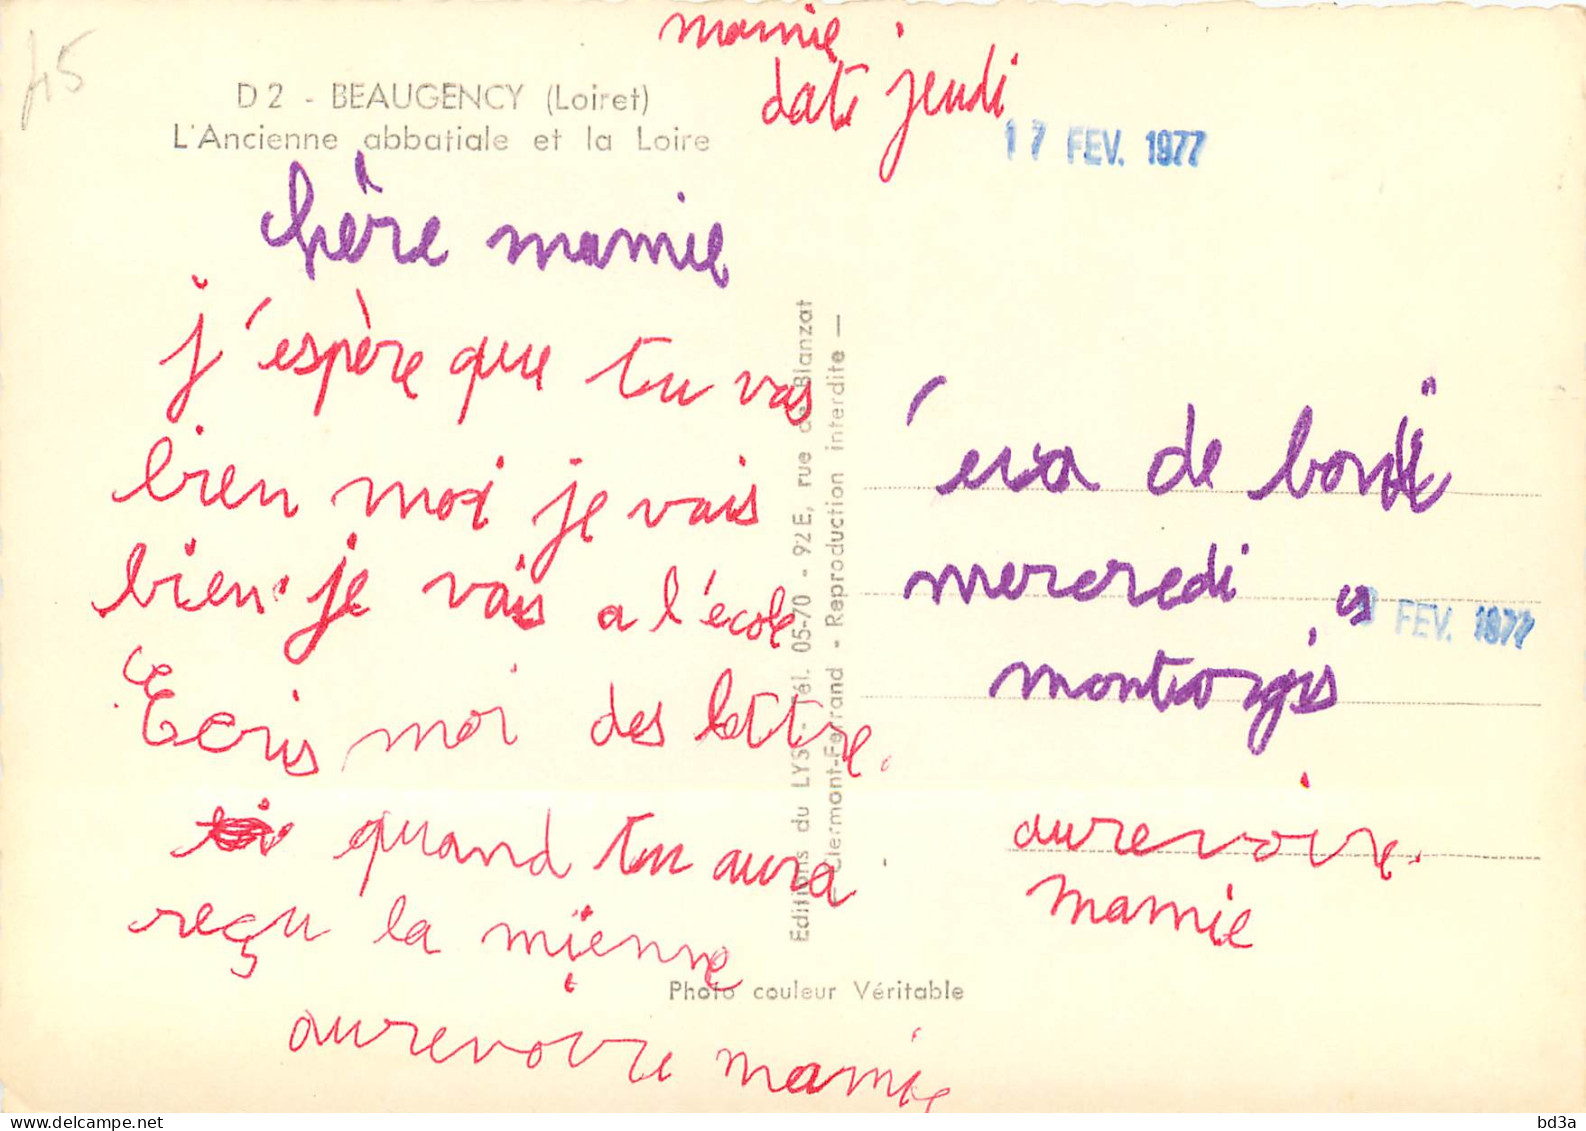 45
mamie
D 2 - BEAUGENCY (Loiret)
L'Ancienne abbatiale et la Loire
date jeudi
17 FEV. 1977
chère mamie
j'espère que tu vas
bien moi je vais
bien. je vais a l'école
Ecris moi des lettre.
quand tu aura
reçu la mienne
aurevoire mamie
Editions du LYS - Tél. 05-70 - 92 E, rue de Blanzat
— Clermont-Ferrand - Reproduction interdite —
de
mercredi
FEV. 1977
montargis
aurevoire.
mamie
Photo couleur Véritable
bd3a